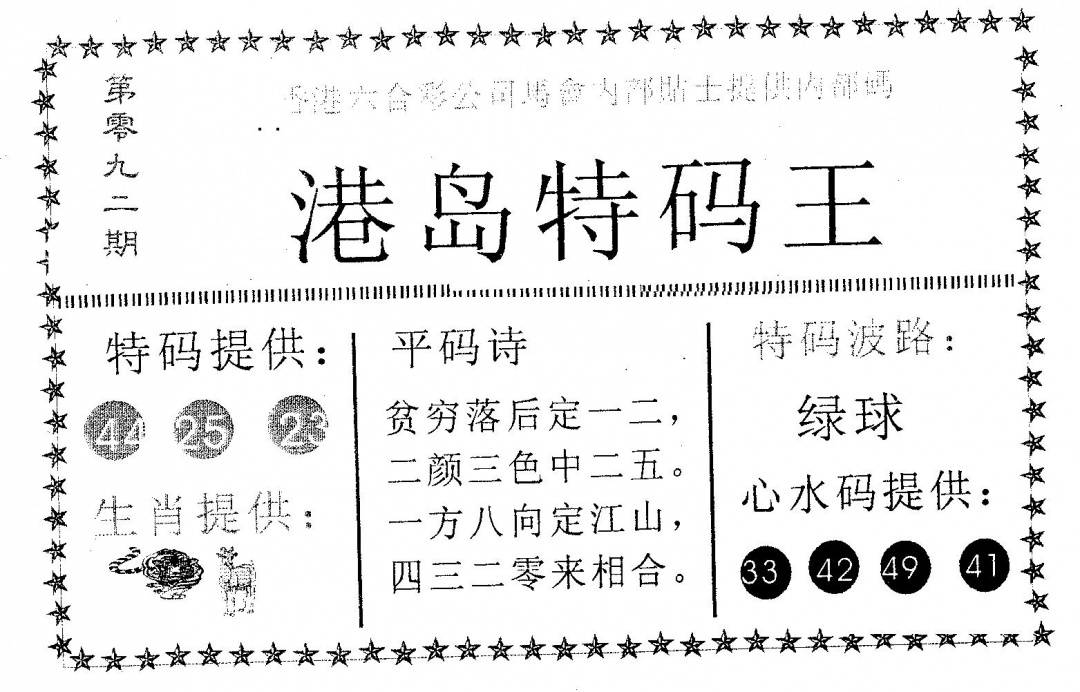 第零九二期
香港六合彩公司馬會内部貼士提供内部碼
港岛特码王
特码提供：
44 25 23
生肖提供：
平码诗
贫穷落后定一二，
二颜三色中二五。
一方八向定江山，
四三二零来相合。
特码波路：
绿球
心水码提供：
33 42 49 41